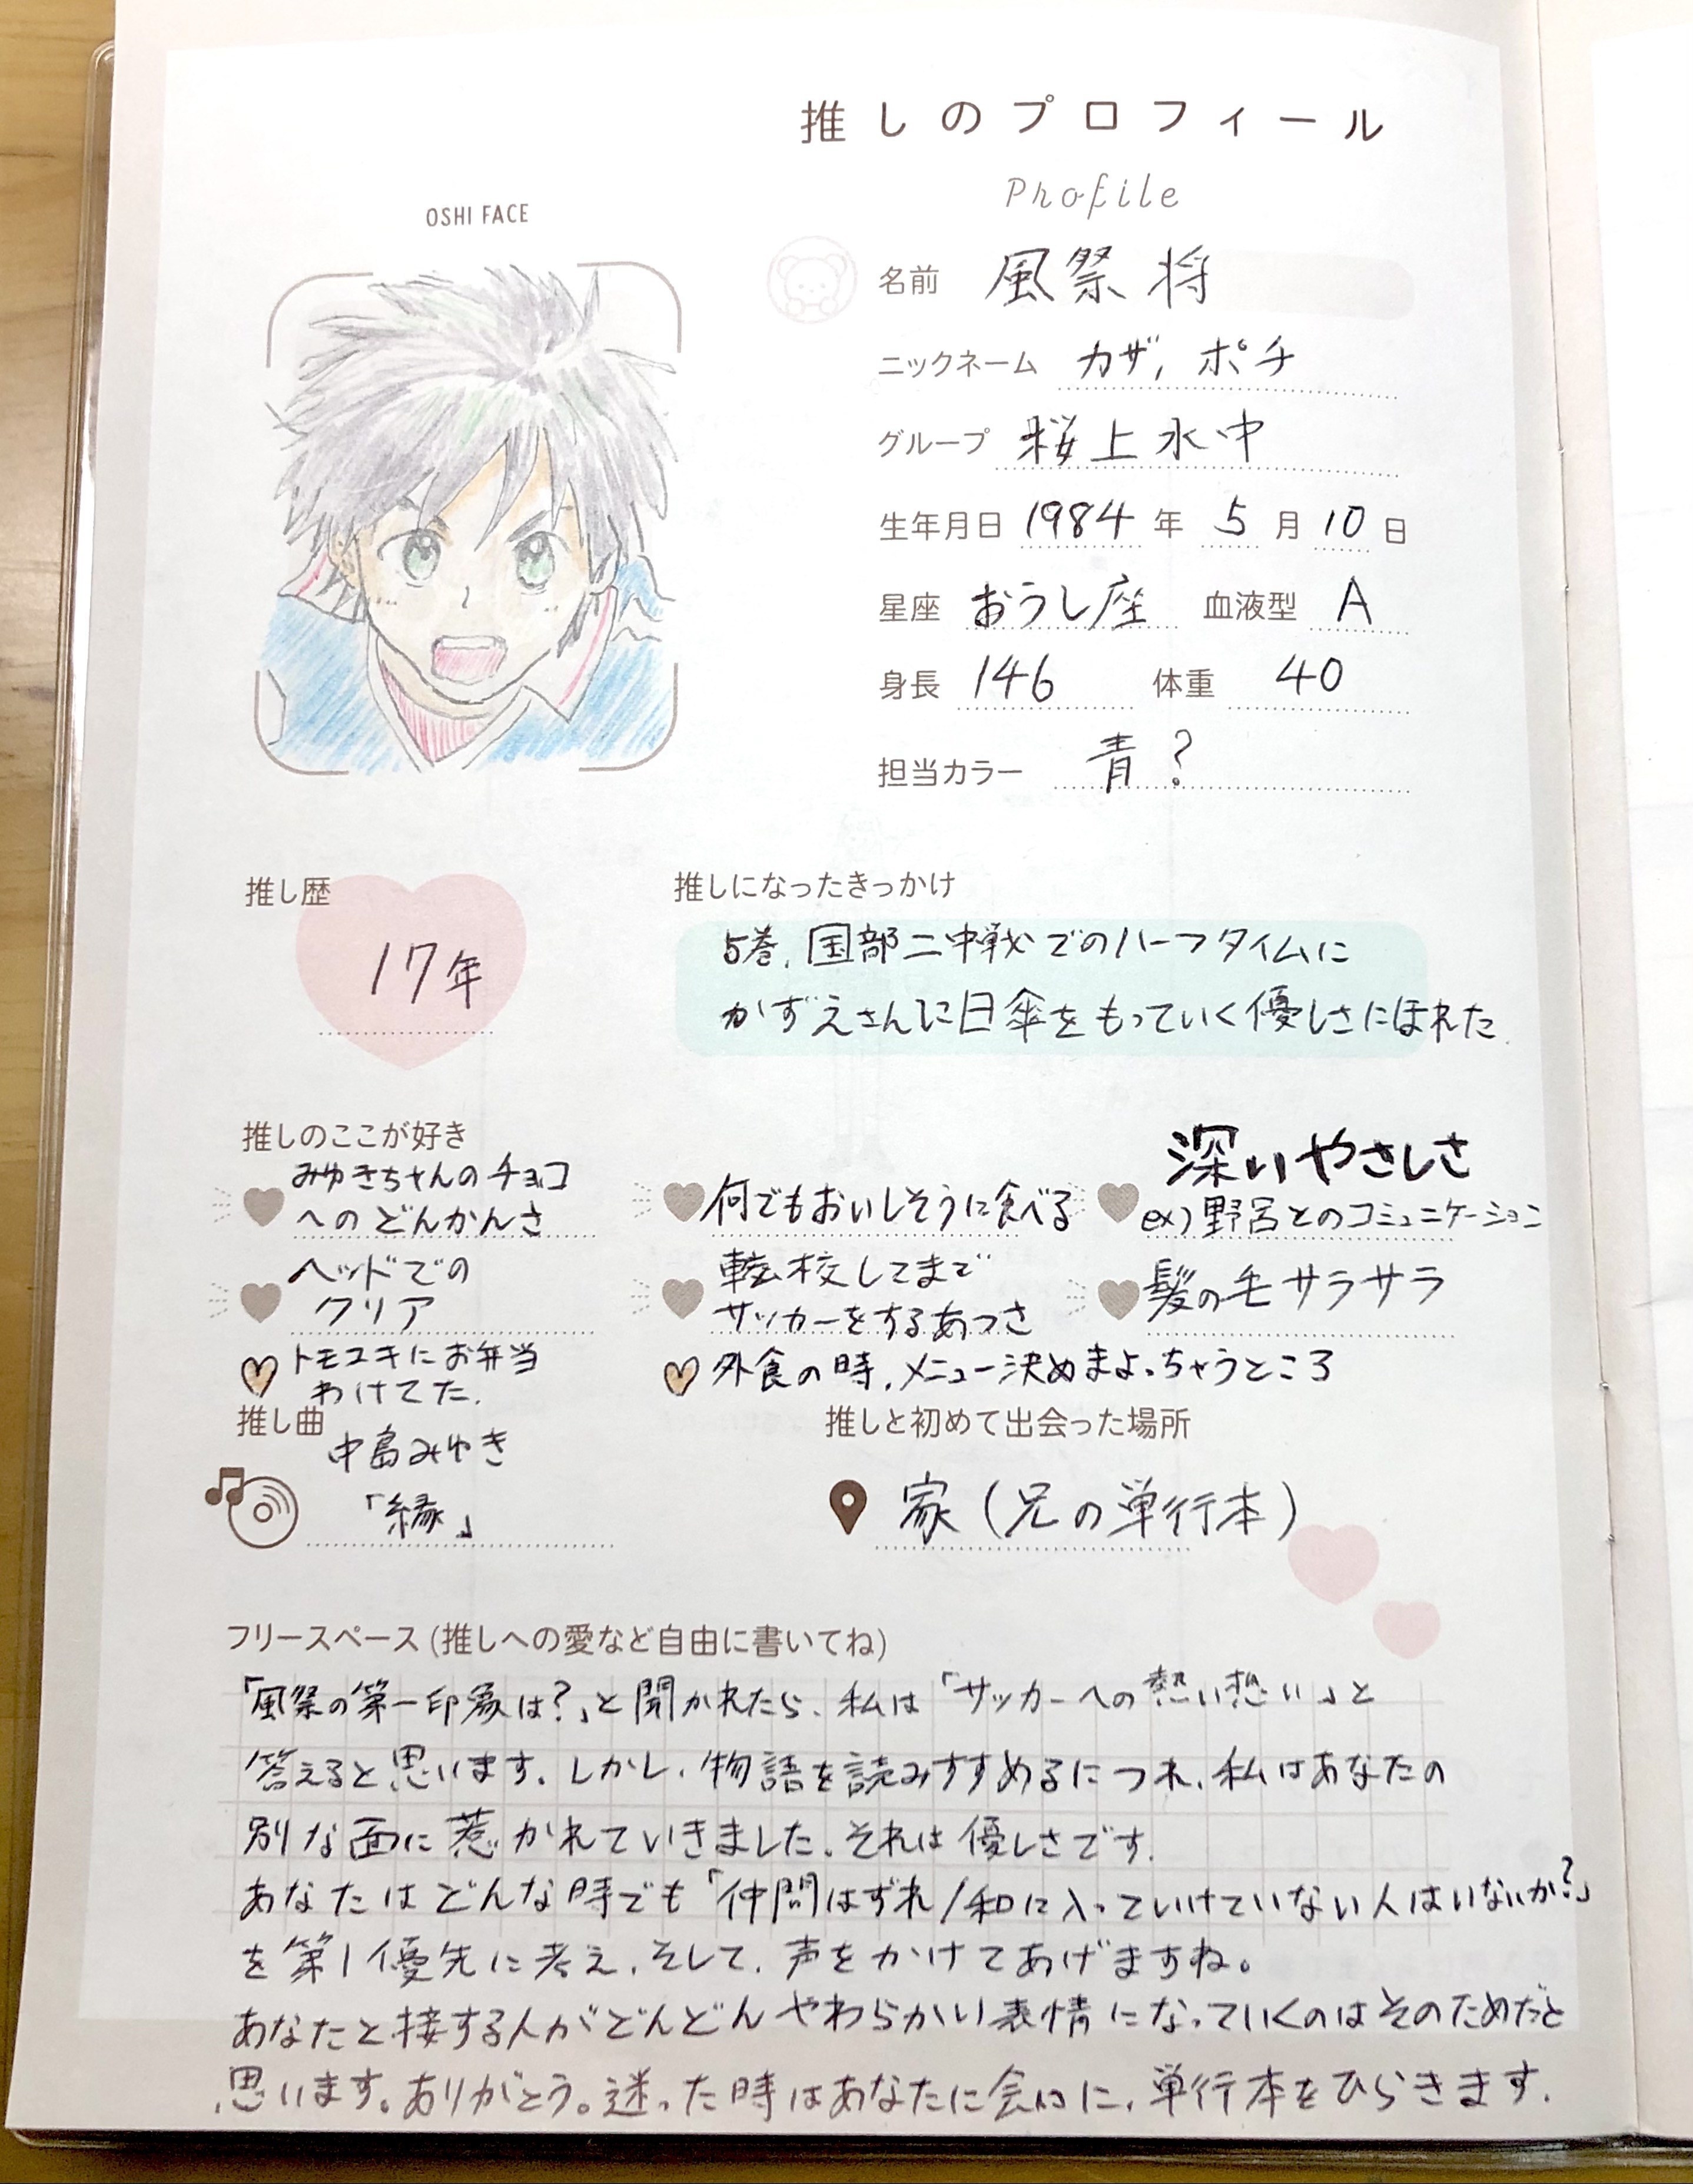 推しのプロフィール
Profile
OSHI FACE
名前 風祭将
ニックネーム カザ, ポチ
グループ 桜上水中
生年月日 1984年 5月10日
星座 おうし座 血液型 A
身長 146 体重 40
担当カラー 青?
推し歴
17年
推しになったきっかけ
5巻.国部二中戦でのハーフタイムに
かずえさんに日傘をもっていく優しさにほれた.
推しのここが好き
みゆきちゃんのチョコ
へのどんかんさ
何でもおいしそうに食べる
深いやさしさ
ex)野呂とのコミュニケーション
ヘッドでの
クリア
転校してまで
サッカーをするあつさ
髪の毛サラサラ
トモユキにお弁当
わけてた.
外食の時.メニュー決めまよっちゃうところ
推し曲
中島みゆき
「縁」
推しと初めて出会った場所
家(兄の単行本)
フリースペース(推しへの愛など自由に書いてね)
「風祭の第一印象は?」と聞かれたら、私は「サッカーへの熱い想い」と
答えると思います.しかし、物語を読みすすめるにつれ、私はあなたの
別な面に惹かれていきました.それは優しさです.
あなたはどんな時でも「仲間はずれ/和に入っていけていない人はいないか?」
を第1優先に考え、そして、声をかけてあげますね。
あなたと接する人がどんどんやわらかい表情になっていくのはそのためだと
思います。ありがとう。迷った時はあなたに会いに、単行本をひらきます.